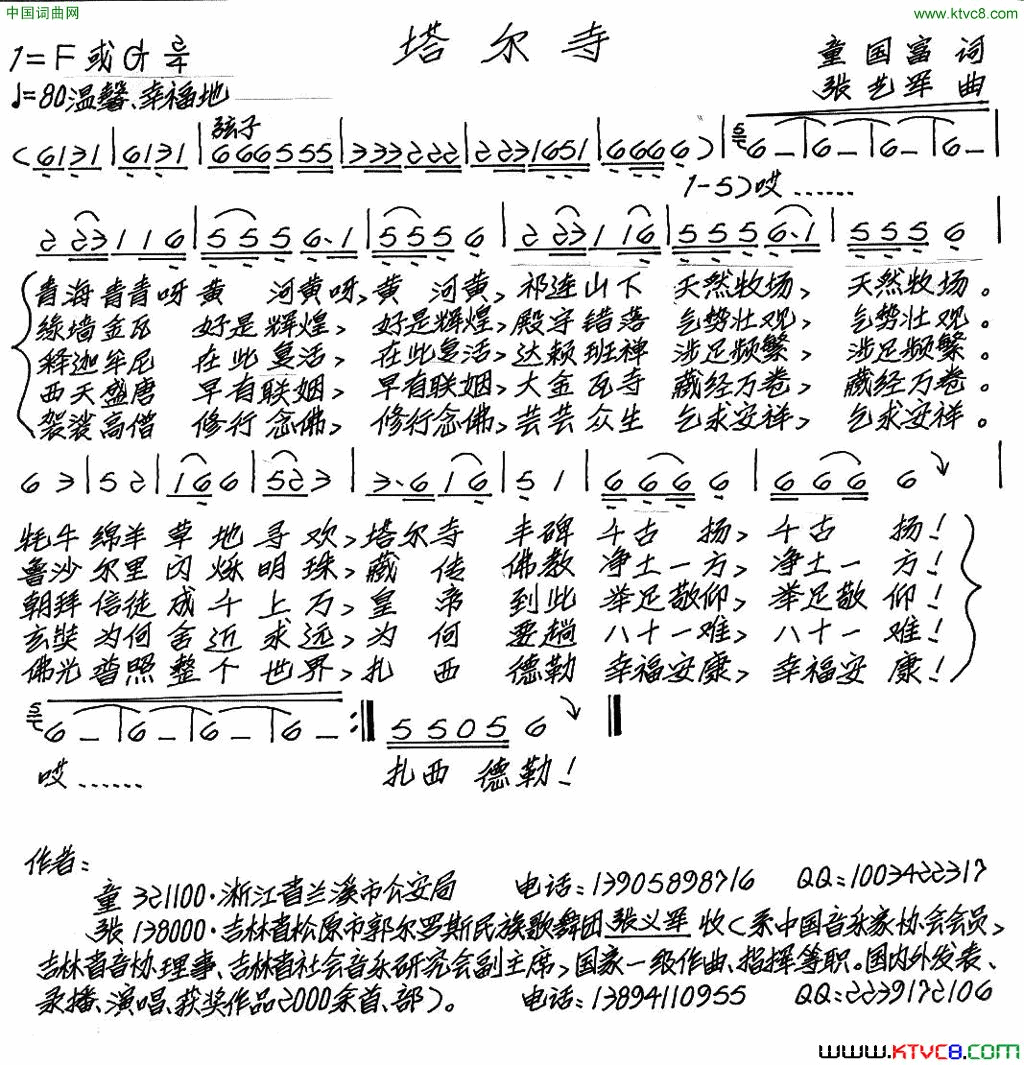 中国词曲网 www.ktvc8.com
塔尔寺
1=F或G 2/4 童国富 词
♩=80温馨、幸福地 张艺军 曲
弦子
(6131|6131|666555|333222|2231651|6666)|6 –|6 –|6 –|6 –|
1-5)哎……
223116|5556·1|5556|223116|5556·1|5556|
青海青青呀黄 河黄呀,黄 河黄,祁连山下 天然牧场, 天然牧场。
绿墙金瓦 好是辉煌, 好是辉煌,殿宇错落 气势壮观, 气势壮观。
释迦牟尼 在此复活, 在此复活,达赖班禅 涉足频繁, 涉足频繁。
西天盛唐 早有联姻, 早有联姻,大金瓦寺 藏经万卷, 藏经万卷。
袈裟高僧 修行念佛, 修行念佛,芸芸众生 乞求安祥, 乞求安祥。
63|52|166|523|3·616|51|6666|666 6|
牦牛绵羊草地寻欢,塔尔寺 丰碑 千古 扬,千古 扬!
鲁沙尔里闪烁明珠,藏 传 佛教 净土一方,净土一方!
朝拜信徒成千上万,皇 帝 到此 举足敬仰,举足敬仰!
玄奘为何舍近求远,为 何 要趟 八十一难,八十一难!
佛光普照整个世界,扎 西 德勒 幸福安康,幸福安康!
6 –|6 –|6 –|6 –:‖5505 6‖
哎…… 扎西 德勒!
作者:
童 321100·浙江省兰溪市公安局 电话:13905898716 QQ:1003422317
张 138000·吉林省松原市郭尔罗斯民族歌舞团张义军 收(系中国音乐家协会会员,
吉林省音协理事、吉林省社会音乐研究会副主席,国家一级作曲、指挥等职。国内外发表、
录播、演唱、获奖作品2000余首、部)。 电话:13894110955 QQ:2239172106
www.KTVC8.com